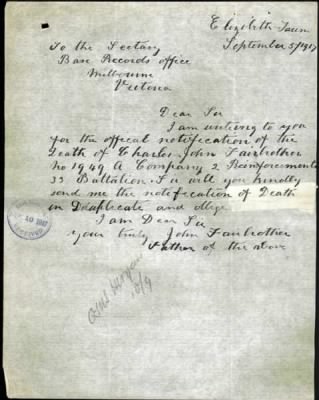 Elizabeth Town
September 5/1917
To the Sectary
Base Records office
Melbourne
Victoria
Dear Sir
I am writing to you
for the offical notification of the
Death of Charles John Fairbrother
no 1949 A Company 2 Reinforcements
33 Battalion. Sir will you kindly
send me the notification of Death
in Duuplecate and oblege
I am Dear Sir
your truly John Fairbrother
Father of the above
10/9
1917
RECEIVED